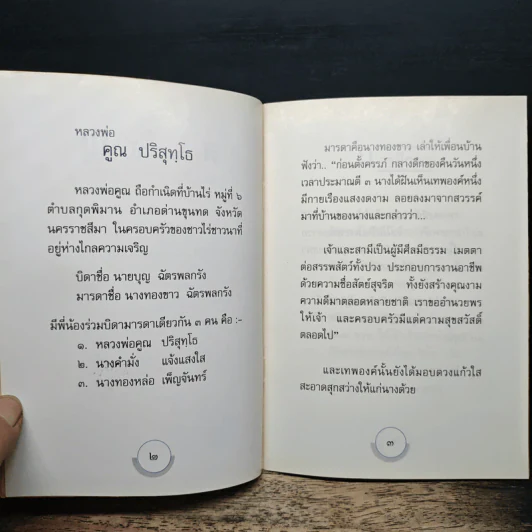 หลวงพ่อ
คูณ ปริสุทฺโธ
หลวงพ่อคูณ ถือกำเนิดที่บ้านไร่ หมู่ที่ ๖
ตำบลกุดพิมาน อำเภอด่านขุนทด จังหวัด
นครราชสีมา ในครอบครัวของชาวไร่ชาวนาที่
อยู่ห่างไกลความเจริญ
บิดาชื่อ นายบุญ ฉัตรพลกรัง
มารดาชื่อ นางทองขาว ฉัตรพลกรัง
มีพี่น้องร่วมบิดามารดาเดียวกัน ๓ คน คือ :-
๑. หลวงพ่อคูณ ปริสุทฺโธ
๒. นางคำมั่ง แจ้งแสงใส
๓. นางทองหล่อ เพ็ญจันทร์
๒
มารดาคือนางทองขาว เล่าให้เพื่อนบ้าน
ฟังว่า.. "ก่อนตั้งครรภ์ กลางดึกของคืนวันหนึ่ง
เวลาประมาณตี ๓ นางได้ฝันเห็นเทพองค์หนึ่ง
มีกายเรืองแสงงดงาม ลอยลงมาจากสวรรค์
มาที่บ้านของนางและกล่าวว่า...
เจ้าและสามีเป็นผู้มีศีลมีธรรม เมตตา
ต่อสรรพสัตว์ทั้งปวง ประกอบการงานอาชีพ
ด้วยความซื่อสัตย์สุจริต ทั้งยังสร้างคุณงาม
ความดีมาตลอดหลายชาติ เราขออำนวยพร
ให้เจ้า และครอบครัวมีแต่ความสุขสวัสดิ์
ตลอดไป"
และเทพองค์นั้นยังได้มอบดวงแก้วใส
สะอาดสุกสว่างให้แก่นางด้วย
๓